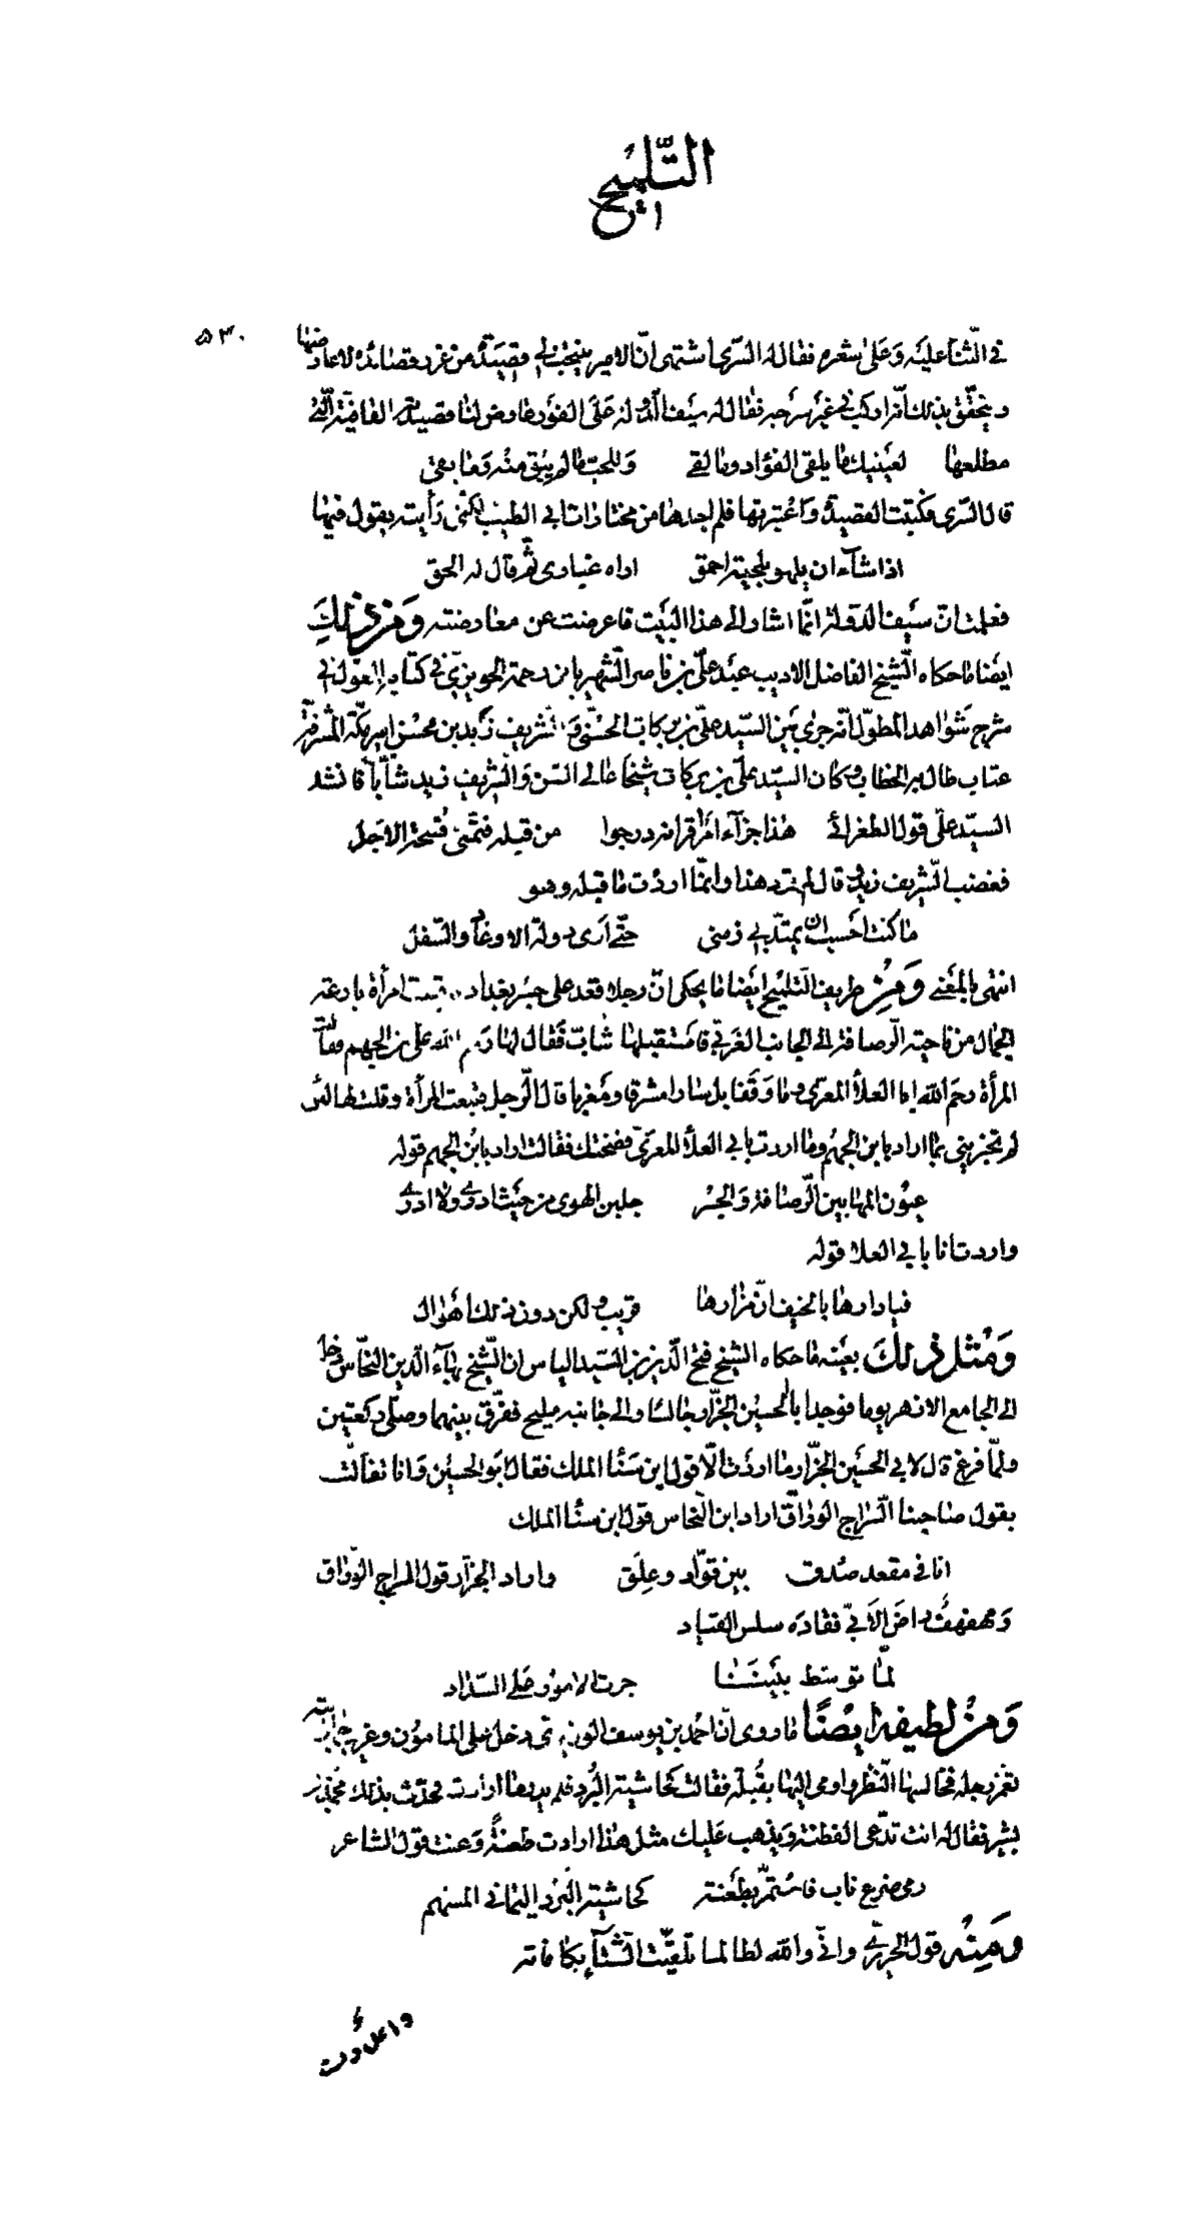 التلميح
٥٣٠
في الثناء عليه وعلى شعره فقال له السري اشتهي ان الامير ينتخب لي قصيدة من غرر قصائده لاعارضها
ويتحقق بذلك انه اركب في غير سرجه فقال له سيف الدولة على الفور عارض لنا قصيدته القافية التي
مطلعها لعينيك ما يلقى الفؤاد وما لقي وللحب ما لم يبق منه وما بقي
قال السري فكتبت القصيدة واعتبرتها فلم اجدها من مختارات ابي الطيب لكني رأيته يقول فيها
اذا شاء ان يلهو بلحية احمق اراه غباري ثم قال له الحق
فعلمت ان سيف الدولة انما اشار الى هذا البيت فاعرضت عن معارضته ومن ذلك
ايضا ما حكاه الشيخ الفاضل الاديب عبد علي بن ناصر الشهير بابن رحمة الحويزي في كتابه المعول في
شرح شواهد المطول انه جرى بين السيد علي بن بركات الحسني والشريف زيد بن محسن امير مكة المشرفة
عتاب طال به الخطاب وكان السيد علي بن بركات شيخا عالي السن والشريف زيد شابا فانشد
السيد علي قول الطغرائي هذا جزاء امرء اقرانه درجوا من قبله فتمنى فسحة الاجل
فغضب الشريف زيد وقال لم ترد هذا وانما اردت ما قبله وهو
ما كنت احسب ان يمتد بي زمني حتى ارى دولة الاوغاد والسفل
انتهى بالمعنى ومن ظريف التلميح ايضا ما يحكى ان رجلا قعد على جسر بغداد امرأة بارعة
الجمال من ناحية الرصافة الى الجانب الغربي فاستقبلها شاب فقال لها رحم الله علي بن الجهم فقالت
المرأة رحم الله ابا العلاء المعري وما وقفا بل سارا مشرقا ومغربا قال الرجل فتبعت المرأة وقلت لها لئن
لم تخبريني بما اراد بابن الجهم وما اردت بابي العلاء المعري فضحتك فقالت اراد بابن الجهم قوله
عيون المها بين الرصافة والجسر جلبن الهوى من حيث ادري ولا ادري
واردت انا بابي العلا قوله
فيا دارها بالخيف ان مزارها قريب ولكن دون ذلك اهوال
ومثل ذلك بعينه ما حكاه الشيخ فتح الدين بن السيد الياس ان الشيخ بهاء الدين النحاس دخل
الى الجامع الازهر يوما فوجد ابا لحسين الجزار جالسا والى جانبه مليح ففرق بينهما وصلى ركعتين
ولما فرغ قال لابي الحسين الجزار ما اردت الا قول ابن سنا الملك فقال ابو الحسين وانا تفألت
بقول صاحبنا السراج الوراق اراد ابن النحاس قول ابن سنا الملك
انا في مقعد صدق بين قواد وعلق واراد الجزار قول السراج الوراق
ومهفهف راض الابي فقاده سلس القياد
لما توسط بيننا جرت الامور على السداد
ومن لطيفه ايضا ما روي ان احمد بن يوسف الوزير دخل على المامون وعريب جاريته
تغمز رجله فخالسها النظر واومى اليها بقبلة فقالت كحاشية البرد فلم يدر ما ارادت فحدث بذلك محمد بن
بشير فقال له انت تدعي الفطنة ويذهب عليك مثل هذا ارادت طعنة وعنت قول الشاعر
رمى ضرع ناب فاستمر بطعنة كحاشية البرد اليماني المسهم
ومنه قول الحريري واني والله لطالما تلقيت الشتاء بكافاته
واعددت